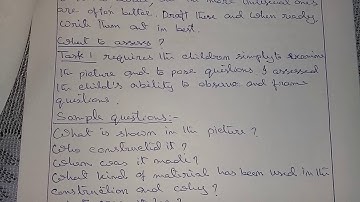 the more unusual ones
are often better. Draft these and when ready,
write them out in best.
What to assess?
Task 1 requires the children simply to examine
the picture and to pose questions & assessed
the child's ability to observe and frame
questions.
Sample questions:-
What is shown in the picture?
Who constructed it?
When was it made?
What kind of material has been used in the
construction and why?